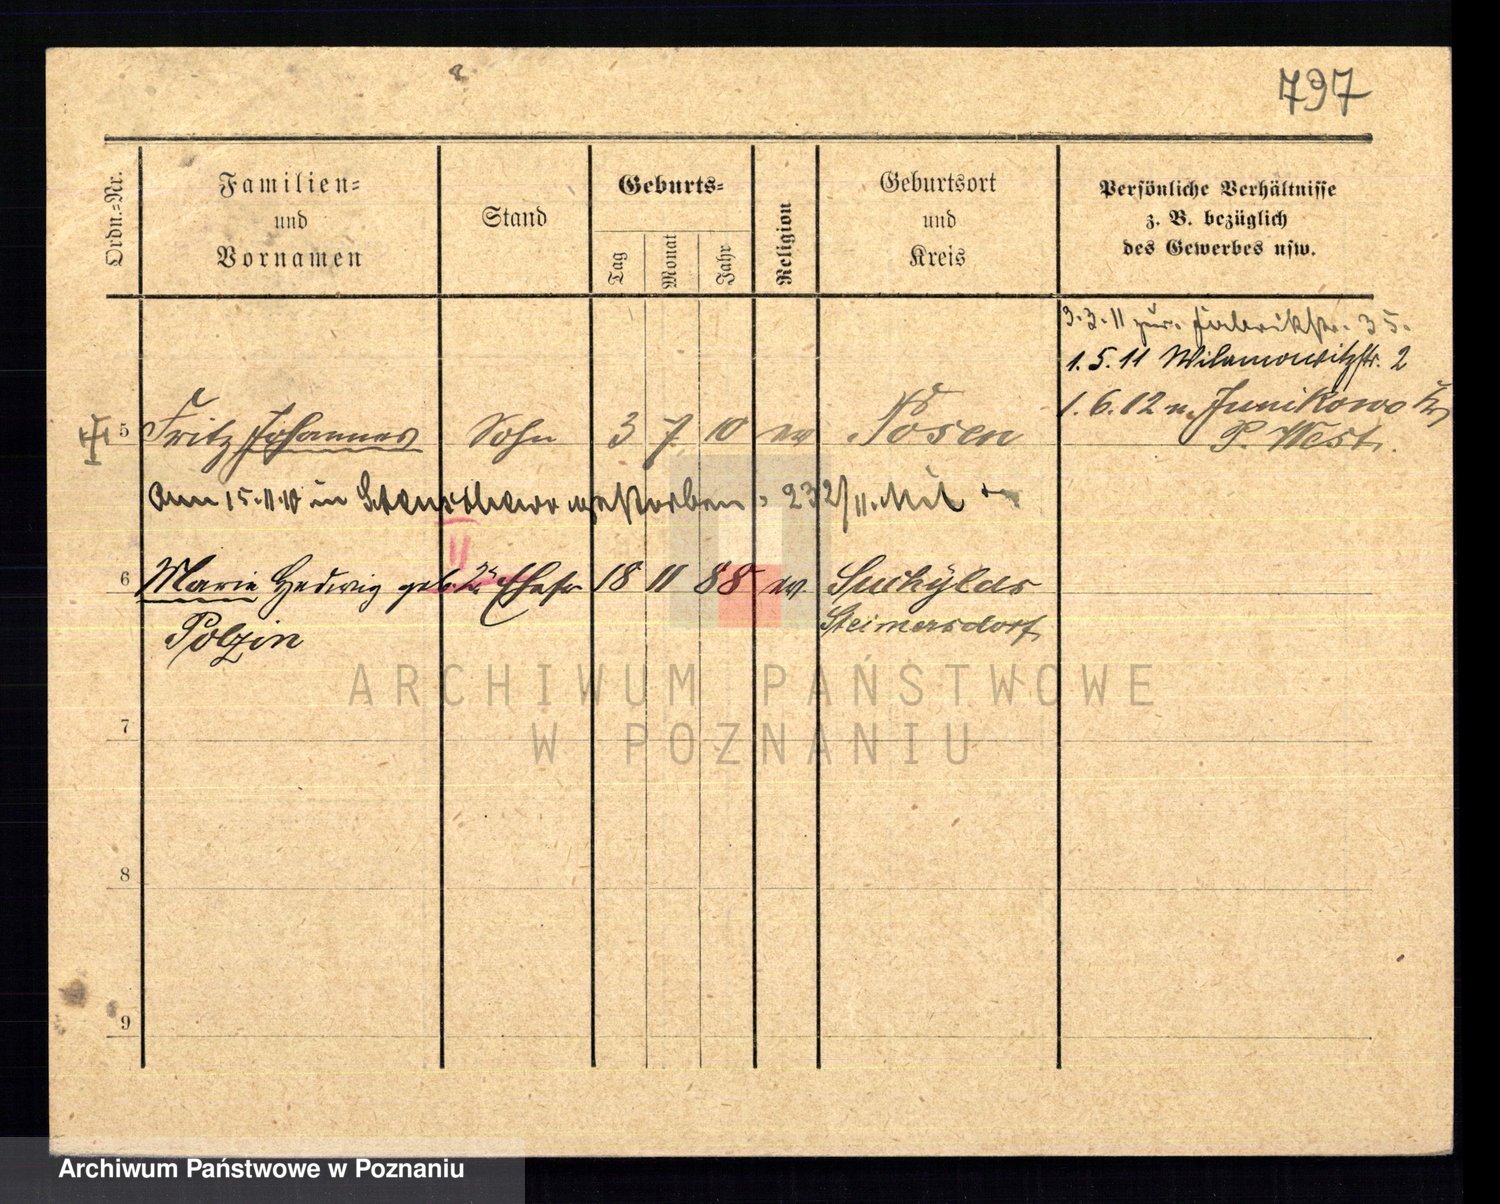 797
Ordn.-Nr.
Familien-
und
Vornamen
Stand
Geburts-
Tag
Monat
Jahr
Religion
Geburtsort
und
Kreis
Persönliche Verhältnisse
z. B. bezüglich
des Gewerbes usw.
3.3.11 zur. Fabrikstr. 35.
1.5.11 Wilamowitzstr. 2
1.6.12 n. Junikowo Kr
P. West.
5 Fritz Johannes Sohn 3 7. 10 ev Posen
Am 15.11.10 in gestorben 232/11.
II
6 Marie Hedwig geb. 2te Ehefr 18 11 88 ev. Suchylas
Polzin Steimersdorf
7
8
9
ARCHIWUM PAŃSTWOWE
W POZNANIU
Archiwum Państwowe w Poznaniu